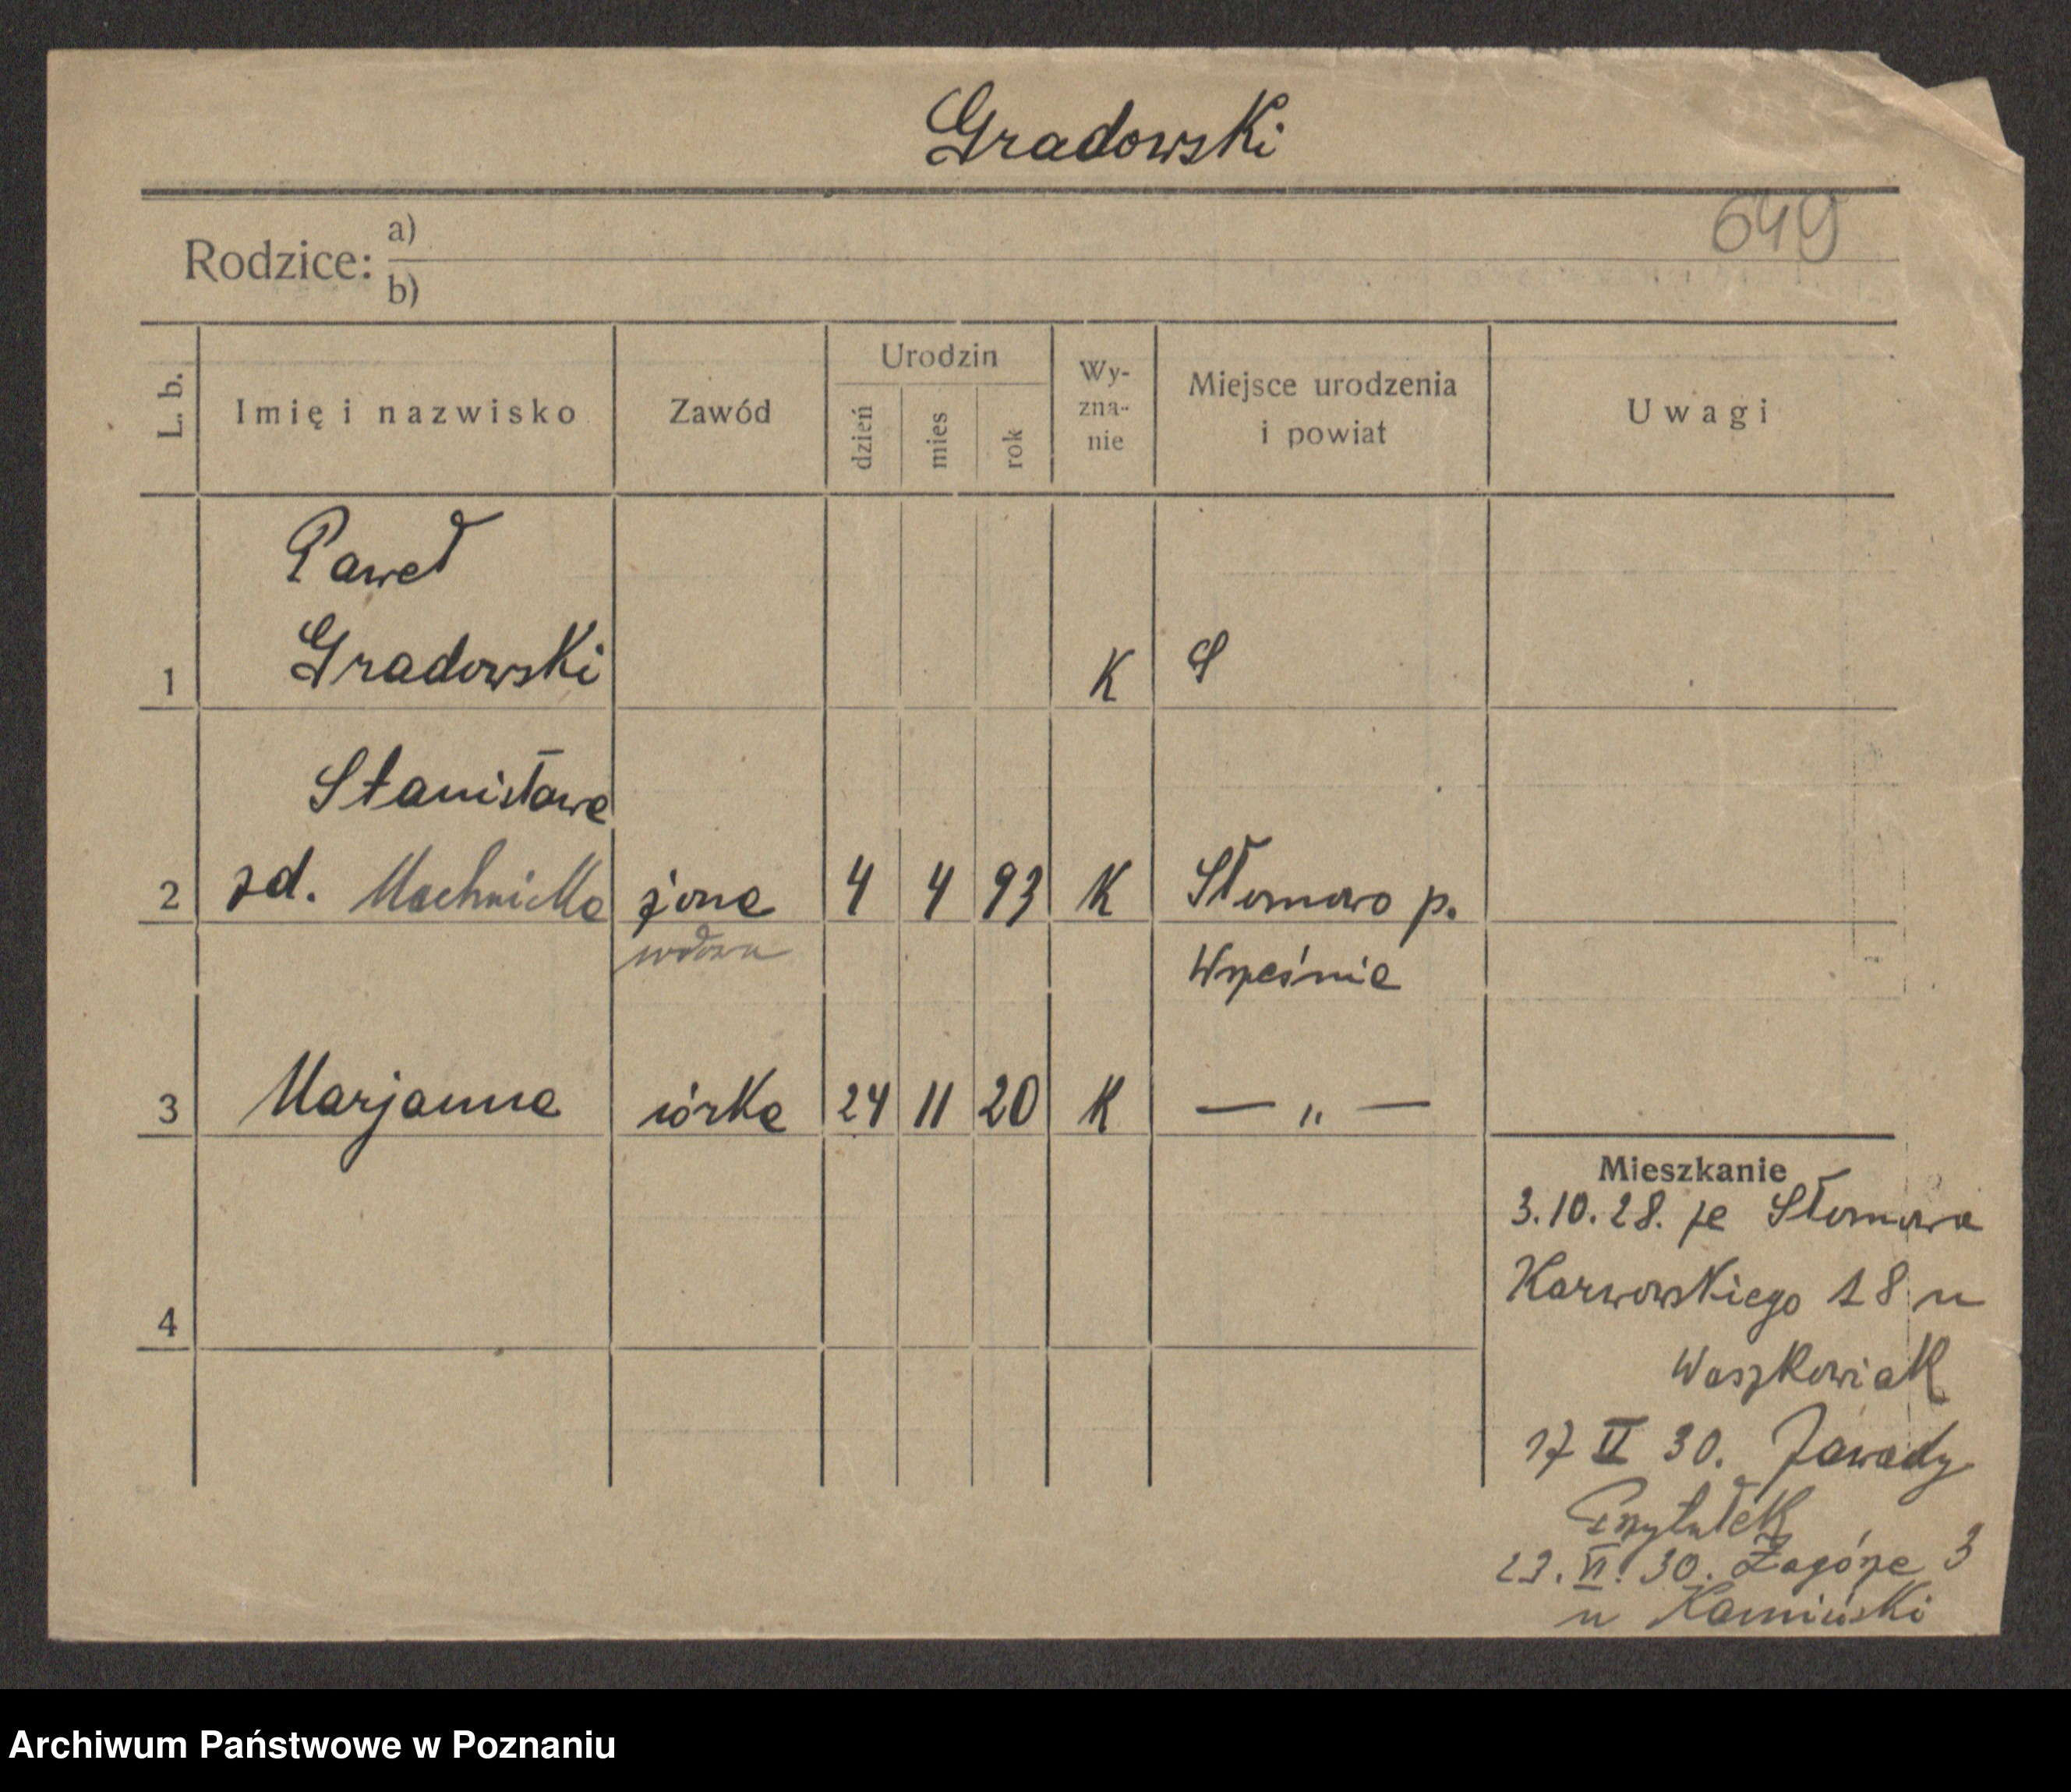 Gradowski
649
Rodzice: a)
b)
L. b. Imię i nazwisko Zawód Urodzin dzień mies rok Wy-zna-nie Miejsce urodzenia i powiat Uwagi
Paweł
1 Gradowski K S
Stanisława
2 zd. Machnicka żona 4 4 93 K Słomowo p.
wdowa Września
3 Marjanna córka 24 11 20 K — „ —
Mieszkanie
3.10.28. ze Słomowa
Karwowskiego 18 u
4
Waszkowiak
17 II 30. Zawady
Przytułek
23. VI. 30. Zagórze 3
u Kamiński
Archiwum Państwowe w Poznaniu